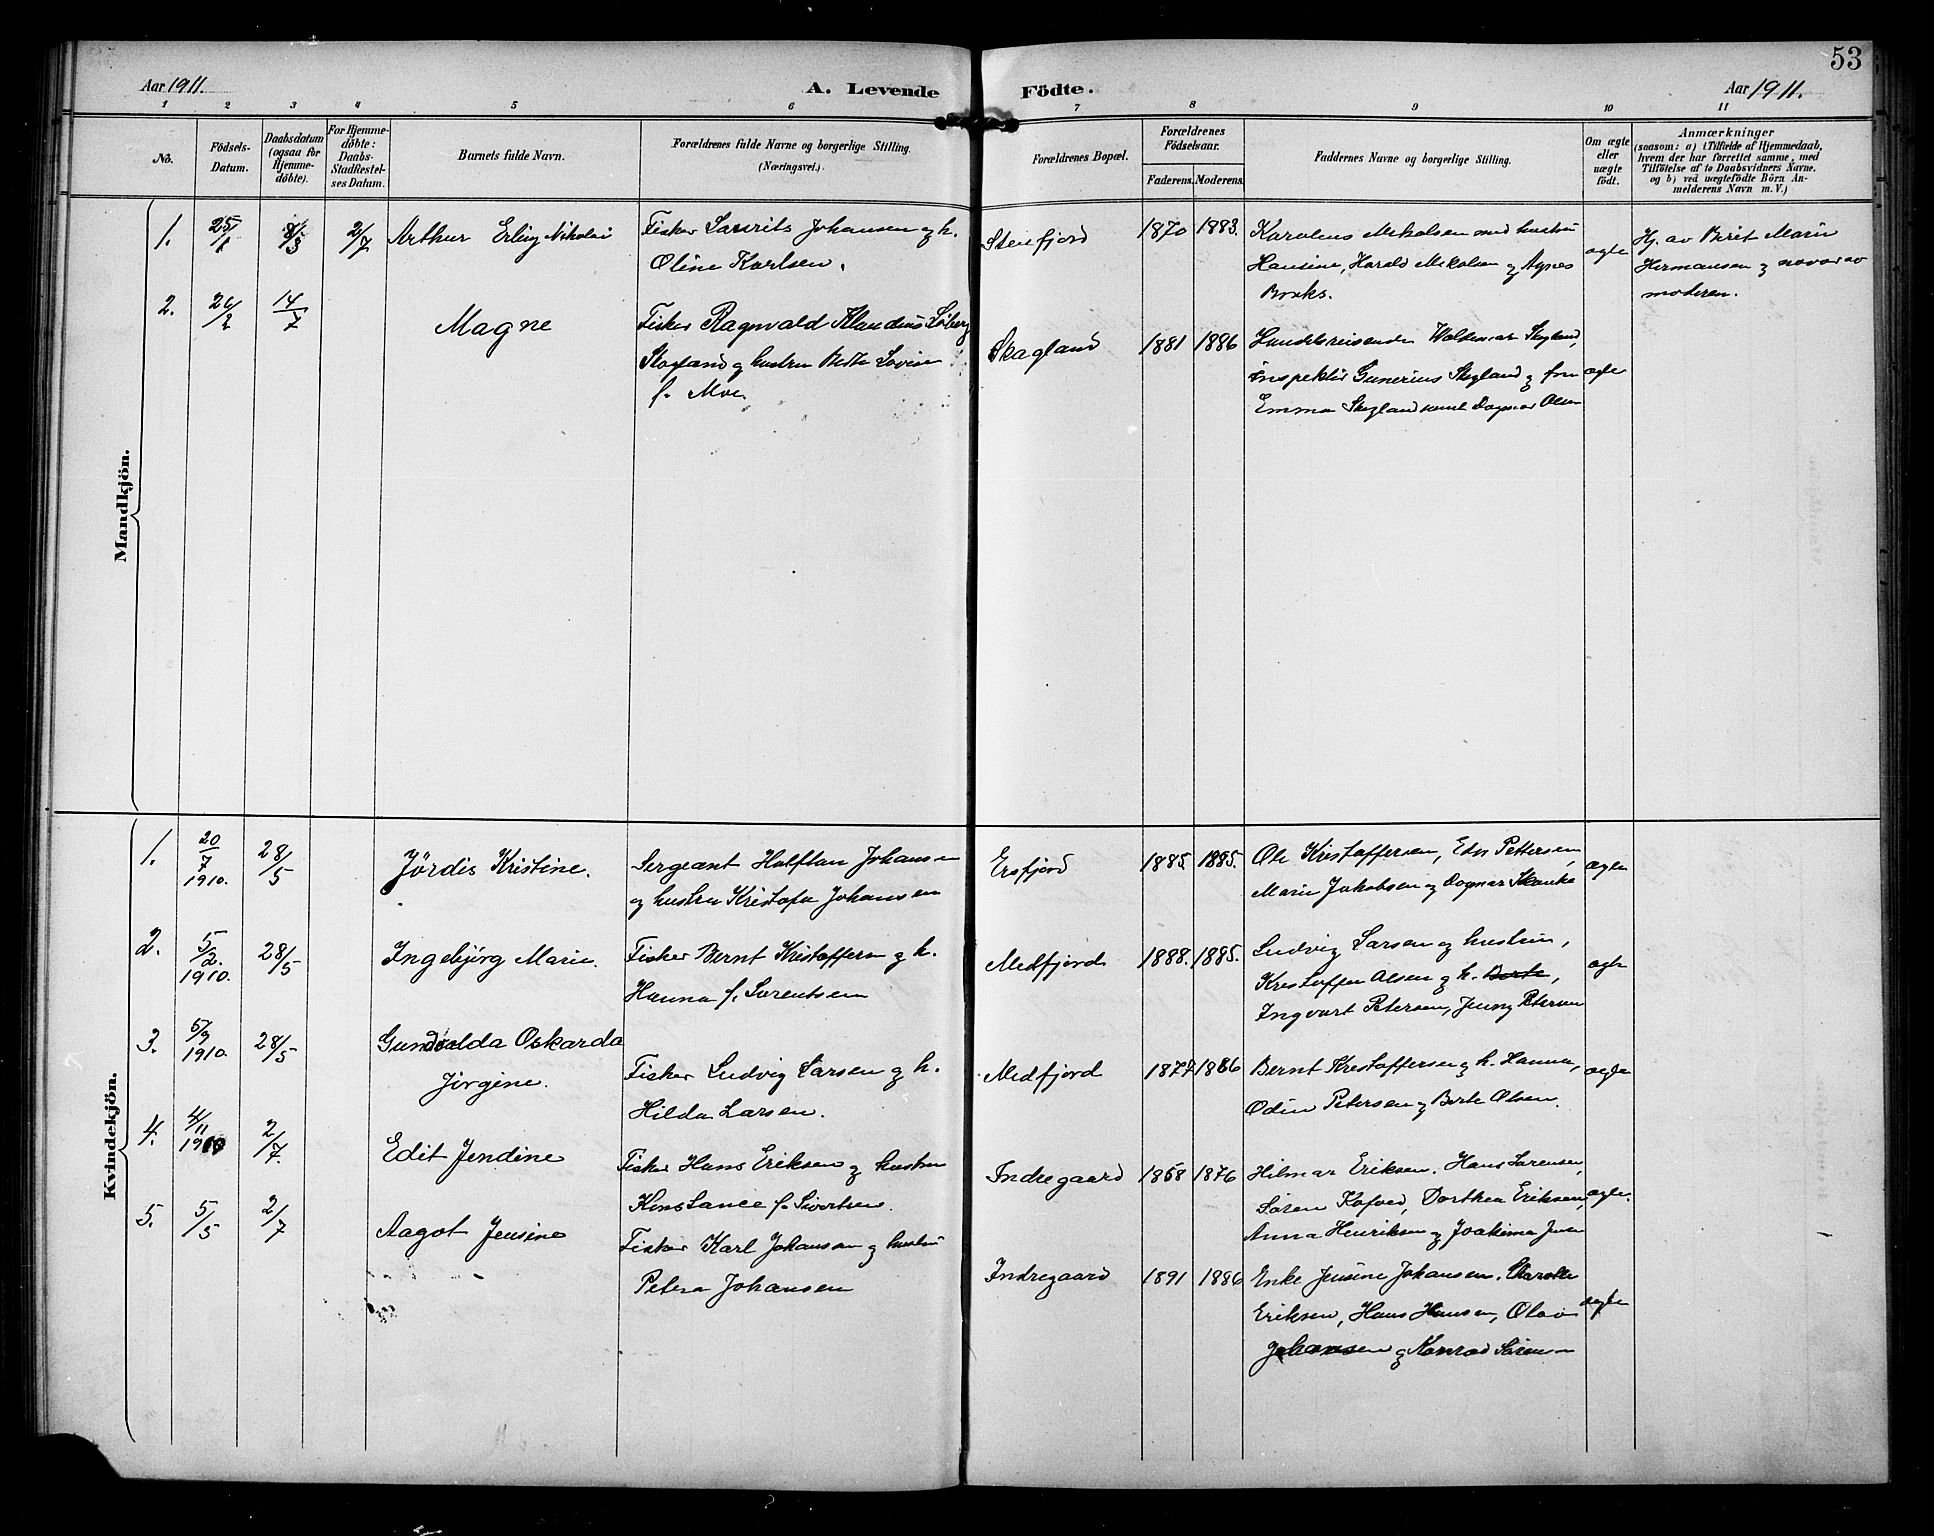 53
Aar 1911.
A. Levende Födte.
Aar 1911.
1 2 3 4 5 6 7 8 9 10 11
No.
Födsels-
Datum.
Daabsdatum
(ogsaa for
Hjemme-
døbte).
For Hjemme-
døbte:
Daabs-
Stadfæstel-
ses Datum.
Barnets fulde Navn.
Forældrenes fulde Navne og borgerlige Stilling.
(Næringsvei.)
Forældrenes Bopæl.
Forældrenes
Födselsaar.
Faderens. Moderens.
Faddernes Navne og borgerlige Stilling.
Om ægte
eller
uægte
födt.
Anmærkninger
(saasom: a) i Tilfælde af Hjemmedaab,
hvem der har forrettet samme, med
Tilföielse af to Daabsvidners Navne,
og b) ved uægtefödte Börn An-
melderens Navn m. V.)
Mandkjön.
1. 25/1 8/3 2/7 Arthur Erling Nikolai
Fisker Laurits Johansen og h.
Oline Karlsen.
Stenfjord 1870 1883.
Karolius Mikalsen med hustru
Hansine, Harald Mikalsen og Agnes
ægte
Hj. av Berit Marie
Hermansen og
moderen.
2. 26/2 14/7 Magne
Fisker Ragnvald Klaudius
Skagland og hustru Lovise
f. Moe
Skagland 1881 1886
Handelsreisende Waldemar Skagland,
Inspektör Gunerius Skagland og fru
Emma Skagland samt Dagmar Olsen
ægte
Kvindekjön.
1. 20/7 1910. 28/5 Jørdis Kristine.
Sergeant Halfdan Johansen
og hustru Kristofa Johansen
Ersfjord 1885. 1885.
Ole Kristoffersen, Edv Pettersen,
Marie Jakobsen og Dagmar Skanke
ægte
2. 5/2. 1910. 28/5 Ingebjørg Marie.
Fisker Bernt Kristoffersen og h.
Hanna f. Lorentsen
Medfjord 1888. 1885.
Ludvig Larsen og hustru,
Kristoffer Olsen og h. Berte,
Ingvart Petersen, Jenny Petersen
ægte
3. 5/9 1910. 28/5 Gundvalda Oskarda
Jørgine.
Fisker Ludvig Larsen og h.
Hilda Larsen.
Medfjord 1877 1886
Bernt Kristoffersen og h. Hanna,
Odin Petersen og Berte Olsen.
ægte
4. 4/11 1910 2/7. Edit Jendine
Fisker Hans Eriksen og hustru
Konstance f. Sivertsen.
Indregaard 1868 1876
Hilmar Eriksen. Hans Sørensen,
Søren Kofoed, Dorthea Eriksen,
Anna Henriksen og Joakima
ægte.
5. 5/5 2/7 Aagot Jensine
Fisker Karl Johansen og hustru
Petra Johansen
Indregaard 1891 1886
Enke Jensine Johansen.
Eriksen, Hans Hansen, Olav
Johansen og Konrad Sörensen
ægte